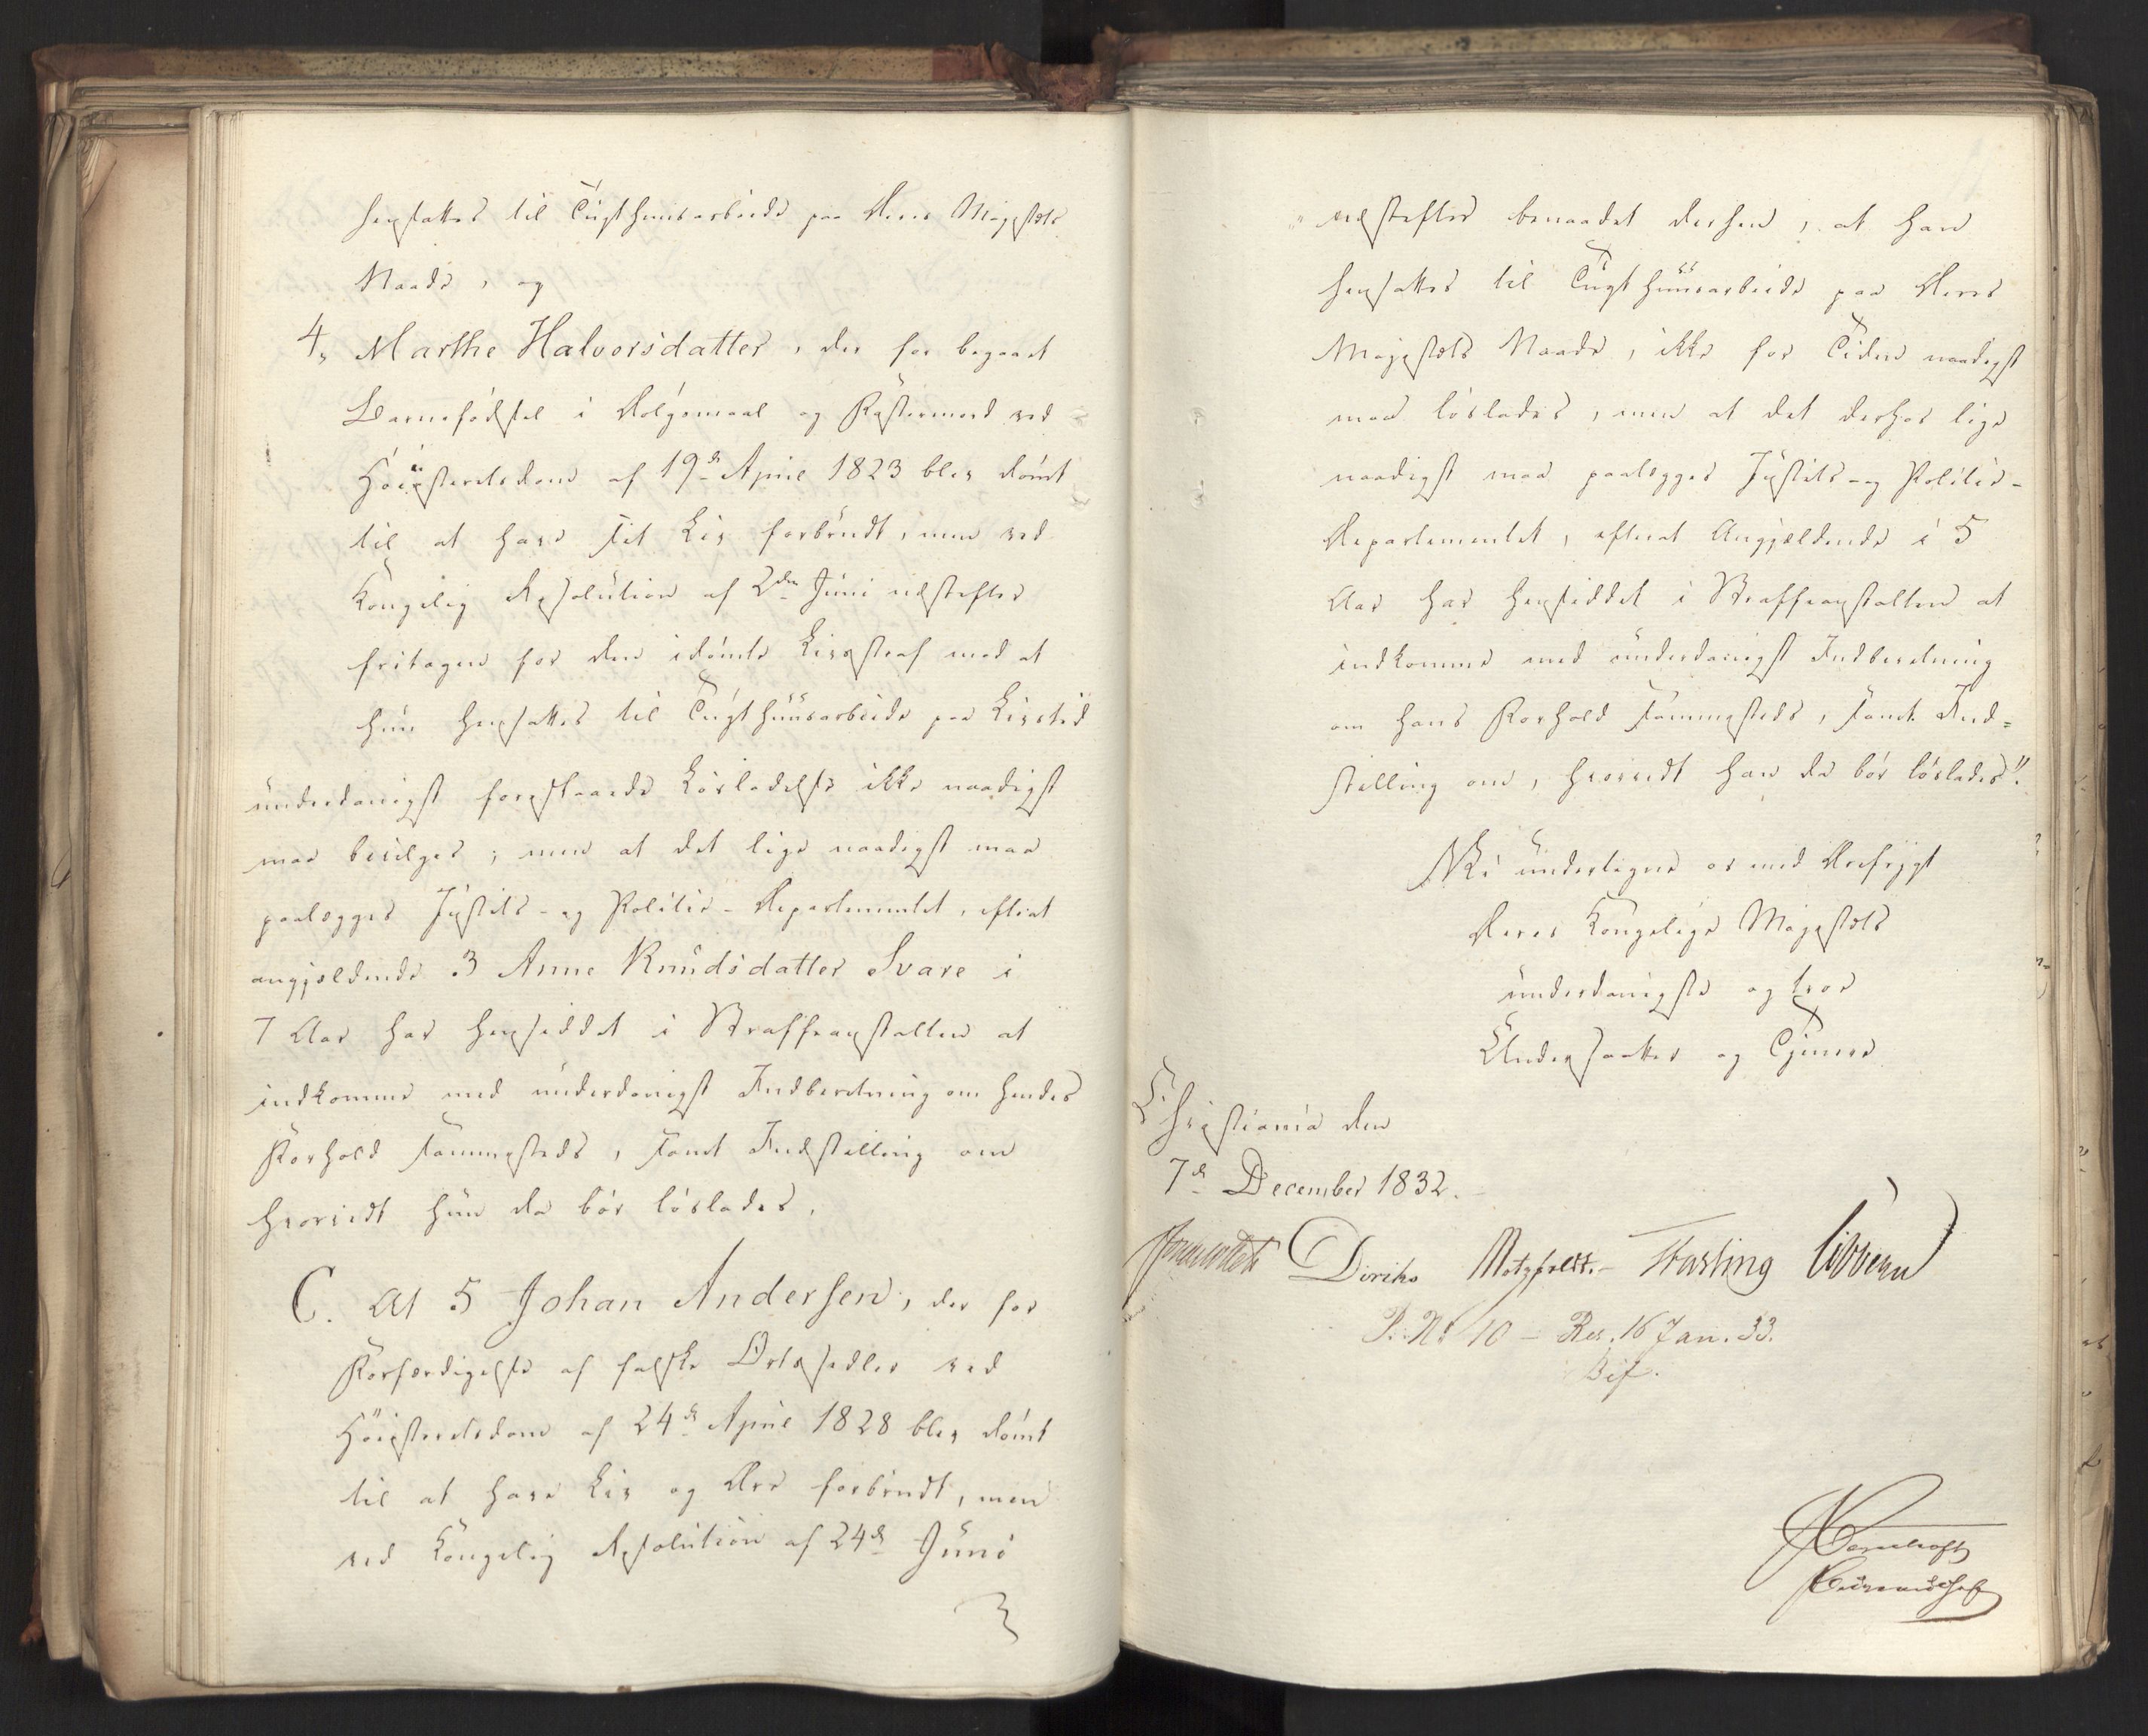 hensattes til Tugthuusarbeide paa Deres Majestets
Naade, og
4, Marthe Halvorsdatter, der for begaaet
Barnefødsel i Dølgsmaal og Fostermord ved
Høiesteretsdom af 19de April 1823 blev dømt
til at have sit Liv forbrudt, men ved
Kongelig Resolution af 2den Juni næstefter
fritagen for den idømte Livsstraf mod at
hun hensattes til Tugthuusarbeide paa Livstid
underdanigst foreslaaede Løsladelse ikke naadigst
maa bevilges; men at det lige naadigst maa
paalægges Justits- og Politie-Departementet, efterat
angjældende 3 Anne Knudsdatter Svare i
7 Aar har hensiddet i Straffeanstalten at
indkomme med underdanigst Indberetning om hendes
Forhold sammesteds, samt Indstilling om
hvorvidt hun da bør løslades.
C. At 5 Johan Andersen, der for
Forfærdigelse af falske Ortssedler ved
Høiesteretsdom af 24de April 1828 blev dømt
til at have Liv og Ære forbrudt, men
ved Kongelig Resolution af 24de Juni
næstefter benaadet derhen, at han
hensattes til Tugthuusarbeide paa Deres
Majestets Naade, ikke for Tiden naadigst
maa løslades, men at det derhos lige
naadigst maa paalægges Justits- og Politie-
Departementet, efterat Angjældende i 5
Aar har hensiddet i Straffeanstalten at
indkomme med underdanigst Indberetning
om hans Forhold sammesteds, samt Ind=
stilling om, hvorvidt han da bør løslades".
Vi undertegne os med Ærefrygt
Deres Kongelige Majestets
underdanigste og troe
Undersaatter og Tjenere
Christiania den
7de December 1832.
Diriks Motzfeldt. Fasting Sibbern
P. No 10 - Res. 16 Jan. 33.
Bif.